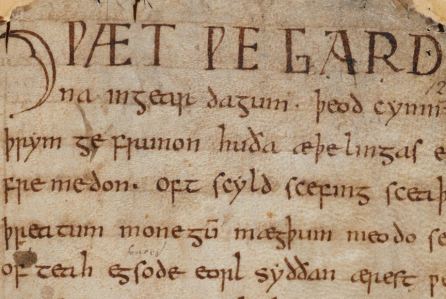 HǷÆT ǷE GARD
na ingear dagum. þeod cyninga
þrym ge frunon huða æþelingas e
fre medon. oft scyld scefing sceaþ
þreatum monegū mægþum meodo se
of teah egsode eorl syððan ærest